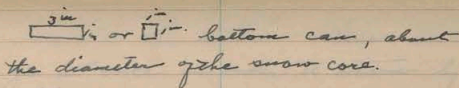 3 in in or in in. bottom can, about
the diameter of the snow core.